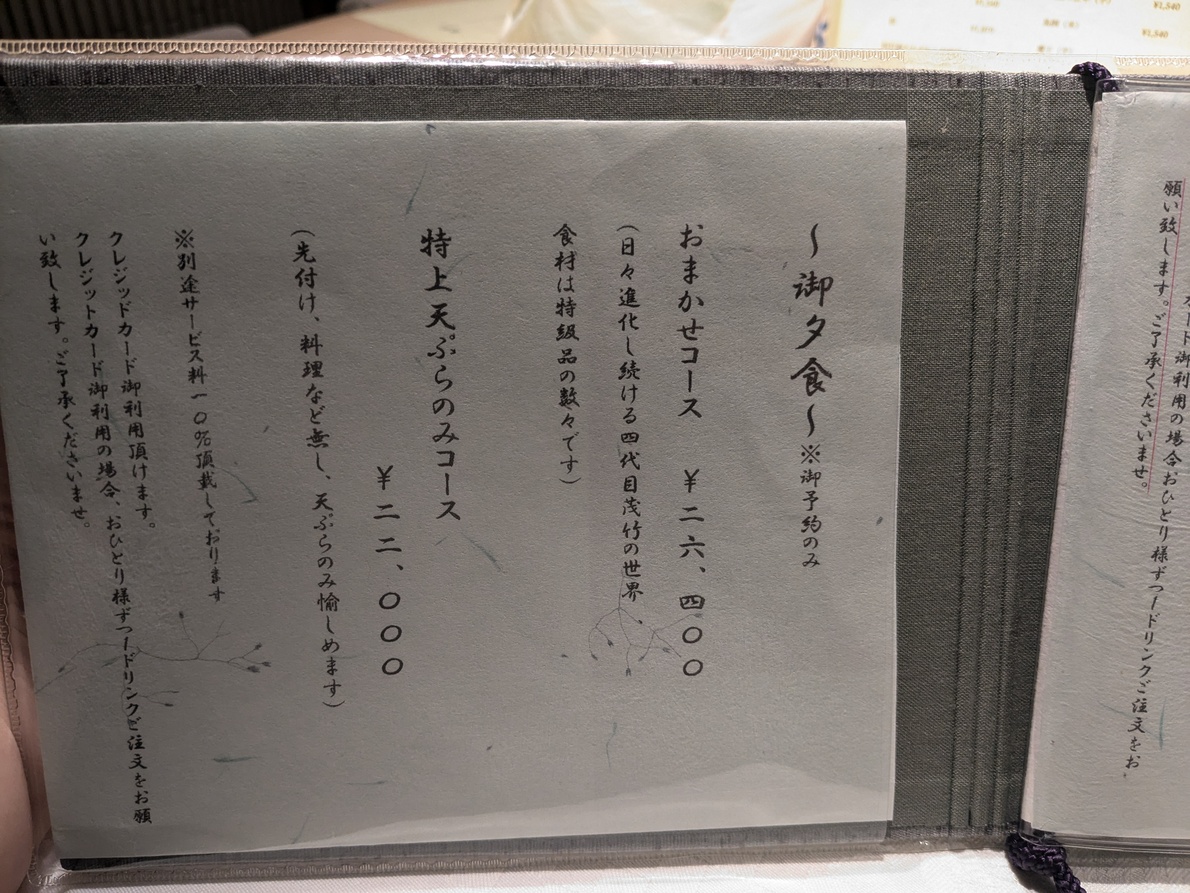 ¥1,540
¥1,540
ード御利用の場合おひとり様ずつ一ドリンクご注文をお
願い致します。ご了承くださいませ。
～御夕食～※御予約のみ
おまかせコース ¥二六、四〇〇
(日々進化し続ける四代目茂竹の世界
食材は特級品の数々です)
特上天ぷらのみコース
¥二二、〇〇〇
(先付け、料理など無し、天ぷらのみ愉しめます)
※別途サービス料一〇%頂戴しております
クレジッドカード御利用頂けます。
クレジットカード御利用の場合、おひとり様ずつ一ドリンクご注文をお願
い致します。ご了承くださいませ。